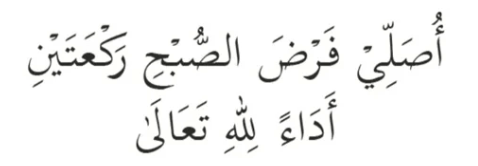 أُصَلِّيْ فَرْضَ الصُّبْحِ رَكْعَتَيْنِ
أَدَاءً لِلّٰهِ تَعَالَىٰ